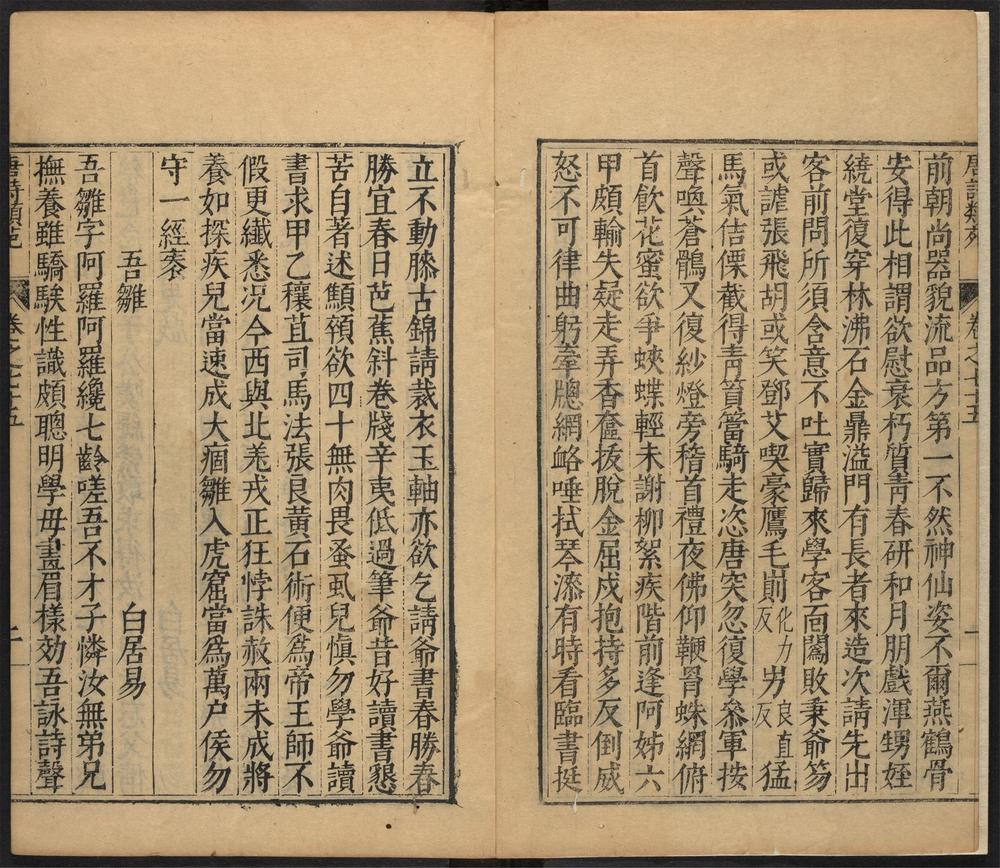 唐詩類苑
卷之七十五
一
前朝尚器貌流品方第一不然神仙姿不爾燕鶴骨
安得此相謂欲慰衰朽質青春研和月朋戲渾甥姪
繞堂復穿林沸石金鼎溢門有長者來造次請先出
客前問所須含意不吐實歸來學客面闖敗秉爺笏
或謔張飛胡或笑鄧艾喫豪鷹毛崱力化反屴良直反猛
馬氣佶傈截得青篔簹騎走恣唐突忽復學叅軍按
聲喚蒼鶻又復紗燈旁稽首禮夜佛仰鞭罥蛛網俯
首飲花蜜欲爭蛺蝶輕未謝柳絮疾階前逢阿姊六
甲頗輸失凝走弄香奩拔脫金屈戍抱持多反倒威
怒不可律曲躬牽牕網㗉唾拭琴漆有時看臨書挺
立不動膝古錦請裁衣玉軸亦欲乞請爺書春勝春
勝宜春日芭蕉斜卷牋辛夷低過筆爺昔好讀書懇
苦自著述顦顇欲四十無肉畏蚤虱兒愼勿學爺讀
書求甲乙穰苴司馬法張良黃石術便爲帝王師不
假更纖悉况今西與北羌戎正狂悖誅赦兩未成將
養如探疾兒當速成大痼雛入虎窟當爲萬户侯勿
守一經袠
吾雛 白居易
吾雛字阿羅阿羅纔七齡嗟吾不才子憐汝無弟兄
撫養雖驕騃性識頗聰明學毋畫眉樣効吾詠詩聲
唐詩類苑
卷之七十五
二